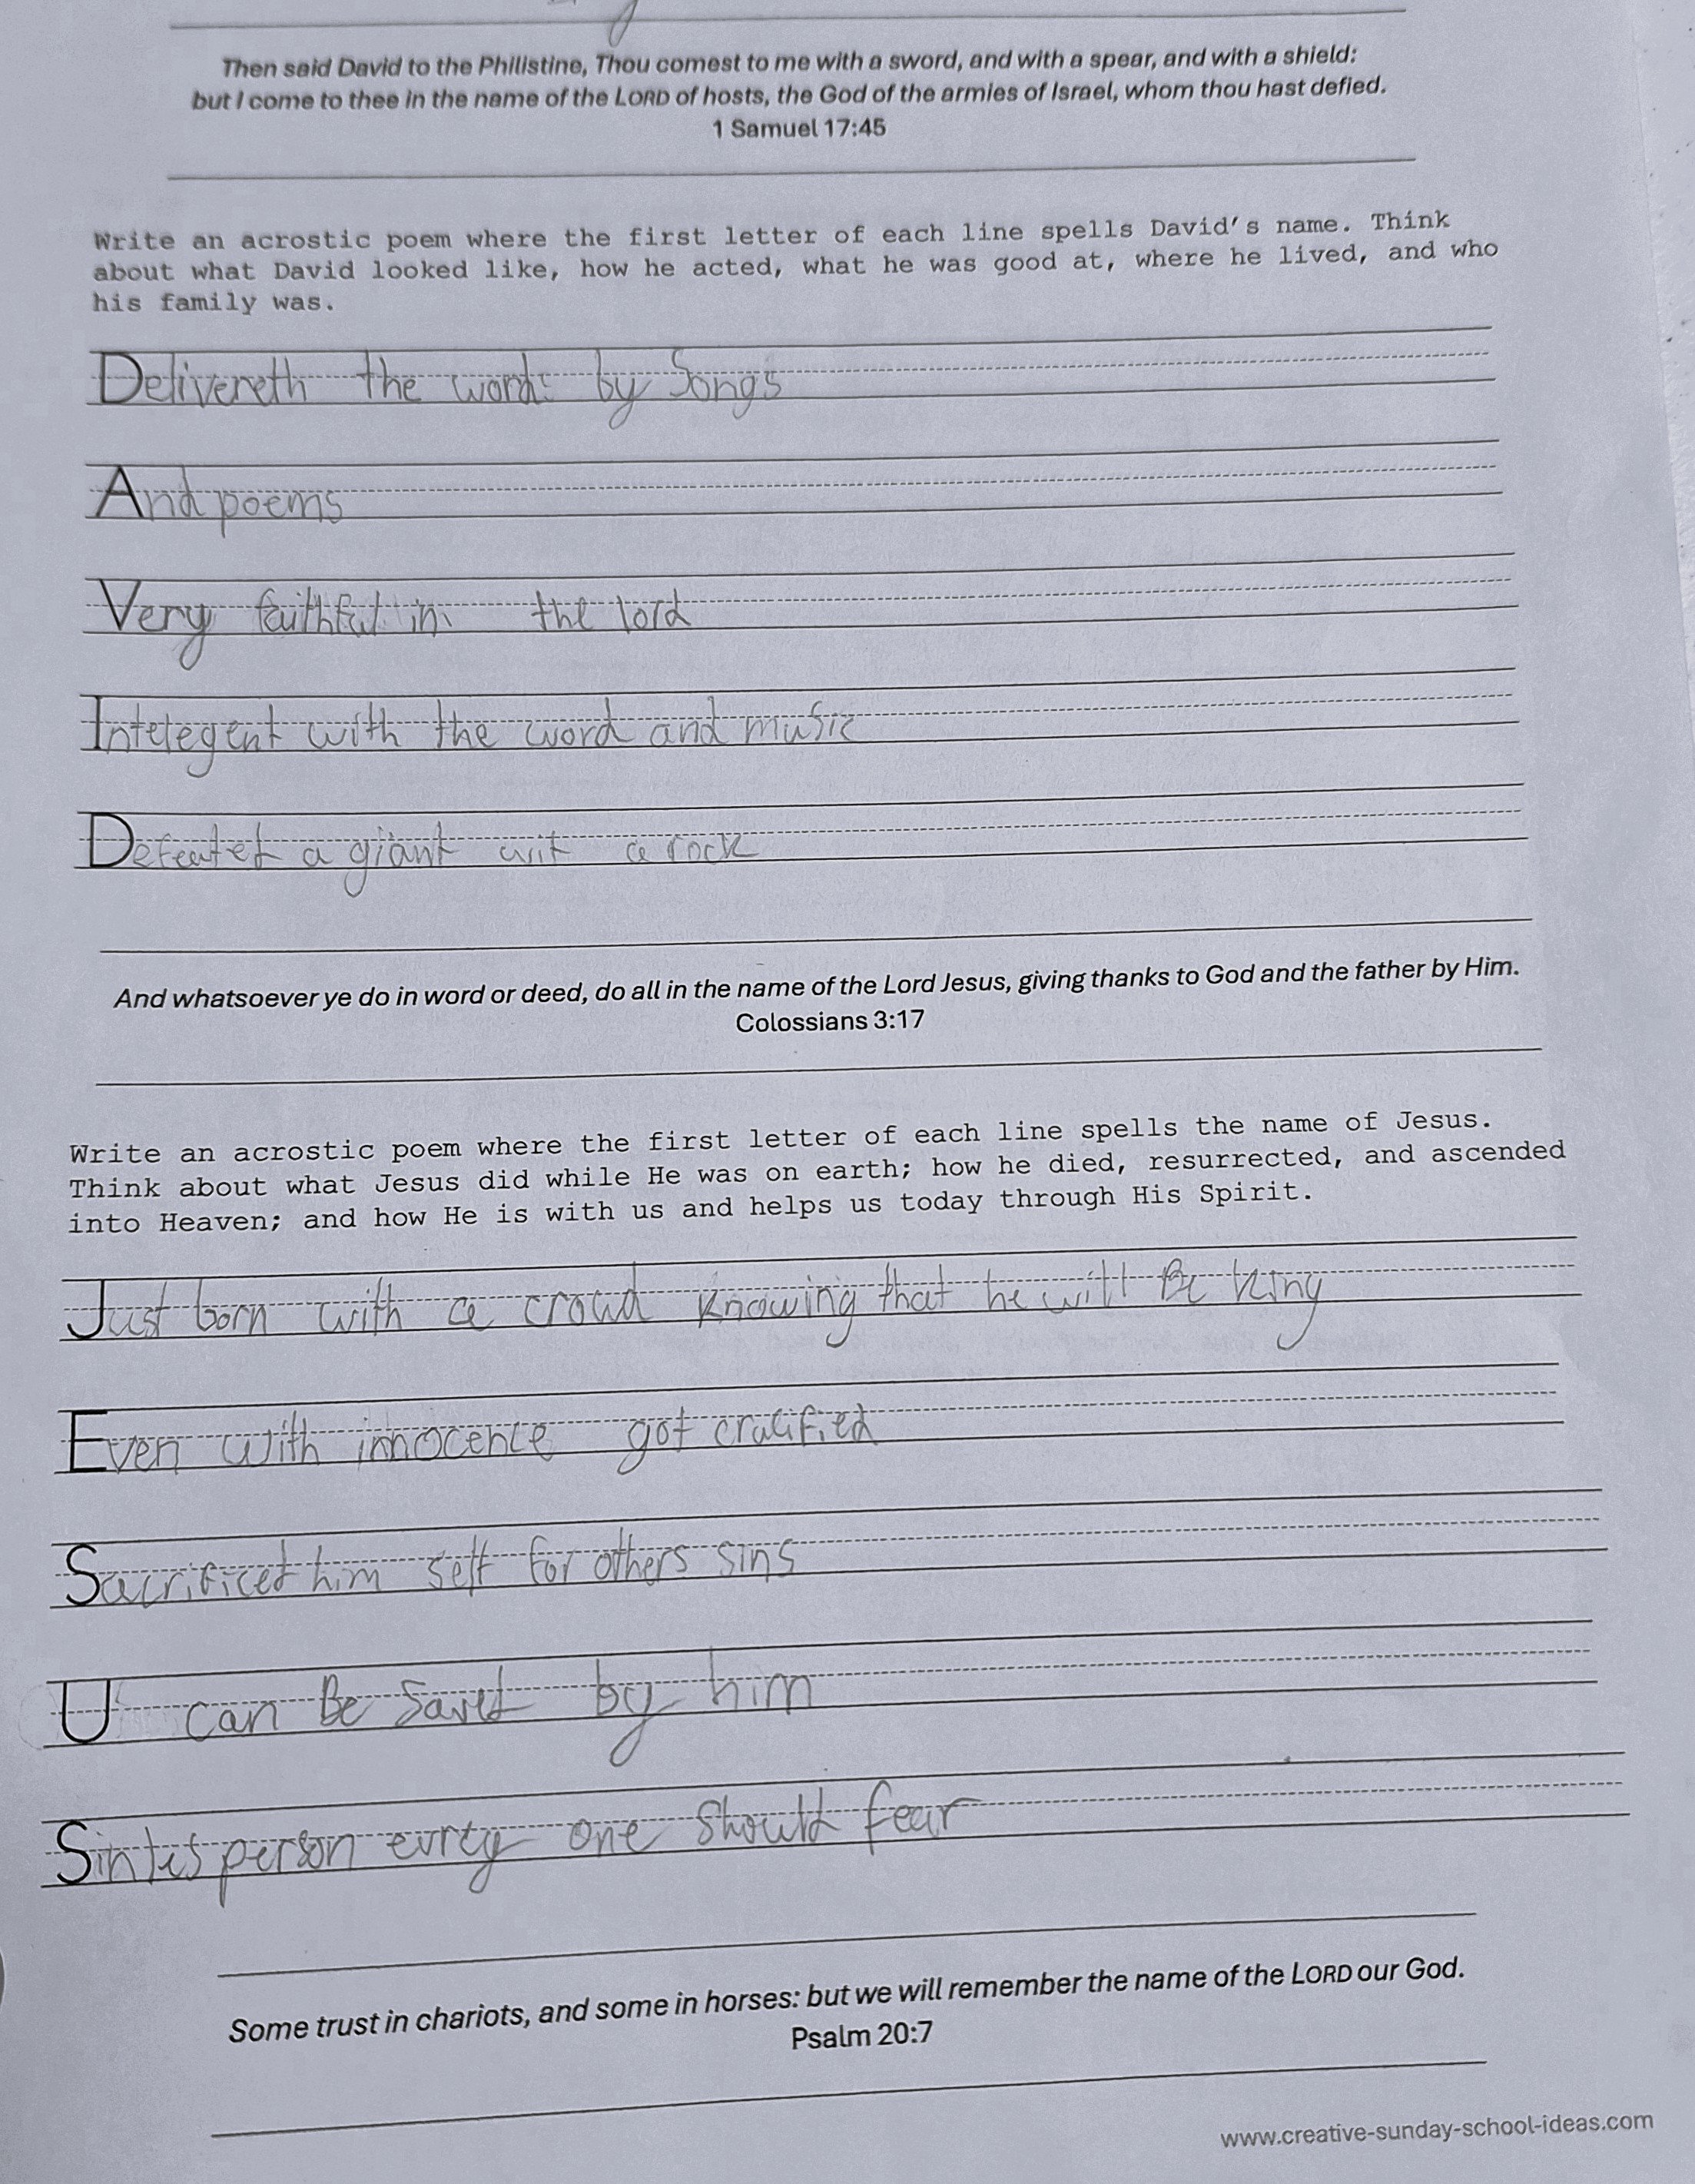 Then said David to the Philistine, Thou comest to me with a sword, and with a spear, and with a shield:
but I come to thee in the name of the LORD of hosts, the God of the armies of Israel, whom thou hast defied.
1 Samuel 17:45
Write an acrostic poem where the first letter of each line spells David's name. Think
about what David looked like, how he acted, what he was good at, where he lived, and who
his family was.
Delivereth the words by Songs
And poems
Very faithful in the lord
Intelegent with the word and music
Defeated a giant wit a rock
And whatsoever ye do in word or deed, do all in the name of the Lord Jesus, giving thanks to God and the father by Him.
Colossians 3:17
Write an acrostic poem where the first letter of each line spells the name of Jesus.
Think about what Jesus did while He was on earth; how he died, resurrected, and ascended
into Heaven; and how He is with us and helps us today through His Spirit.
Just born with a croud knowing that he will Be king
Even with innocence got crucified
Sacrificed him self for others sins
U can Be Saved by him
Sinles person evrey one Should fear
Some trust in chariots, and some in horses: but we will remember the name of the LORD our God.
Psalm 20:7
www.creative-sunday-school-ideas.com